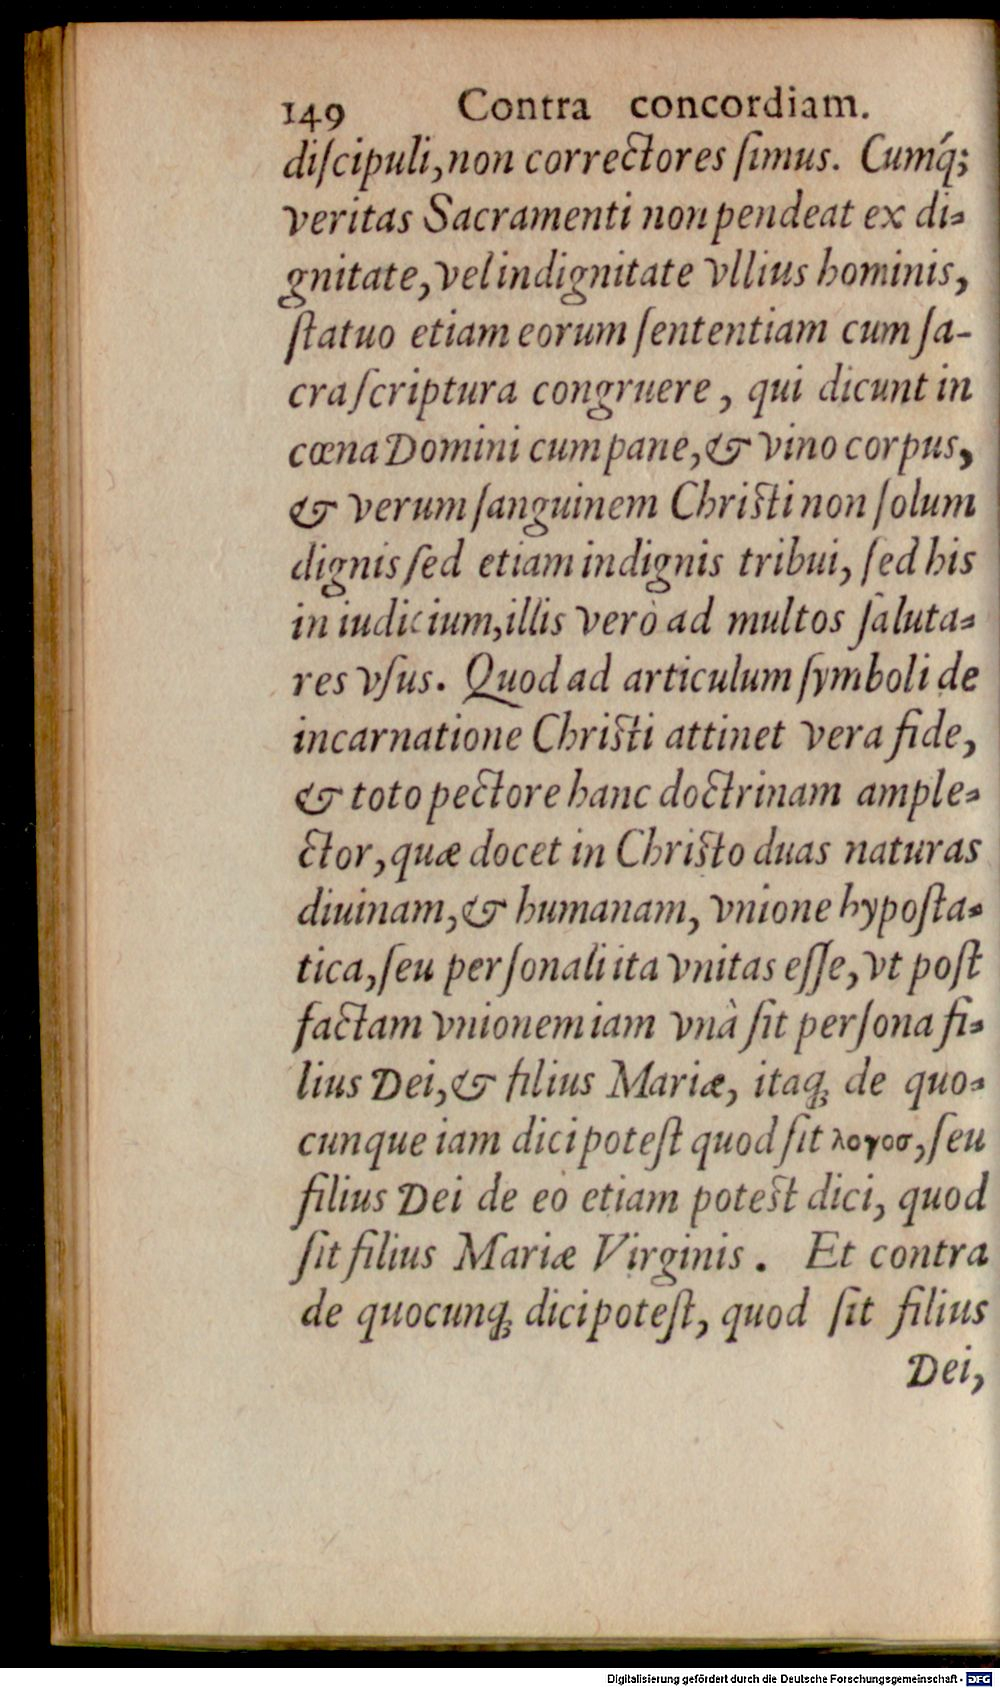 149 Contra concordiam.
diſcipuli, non correctores ſimus. Cumq́;
veritas Sacramenti non pendeat ex di-
gnitate, vel indignitate vllius hominis,
ſtatuo etiam eorum ſententiam cum ſa-
cra ſcriptura congruere, qui dicunt in
cœna Domini cum pane, & vino corpus,
& verum ſanguinem Chriſti non ſolum
dignis ſed etiam indignis tribui, ſed his
in iudicium, illis verò ad multos ſaluta-
res vſus. Quod ad articulum ſymboli de
incarnatione Chriſti attinet vera fide,
& toto pectore hanc doctrinam ample-
ctor, quæ docet in Chriſto duas naturas
diuinam, & humanam, vnione hypoſta-
tica, ſeu perſonali ita vnitas eſſe, vt poſt
factam vnionem iam vnà ſit perſona fi-
lius Dei, & filius Mariæ, itaq; de quo-
cunque iam dici poteſt quod ſit λογοσ, ſeu
filius Dei de eo etiam poteſt dici, quod
ſit filius Mariæ Virginis. Et contra
de quocunq; dici poteſt, quod ſit filius
Dei,
Digitalisierung gefördert durch die Deutsche Forschungsgemeinschaft - DFG